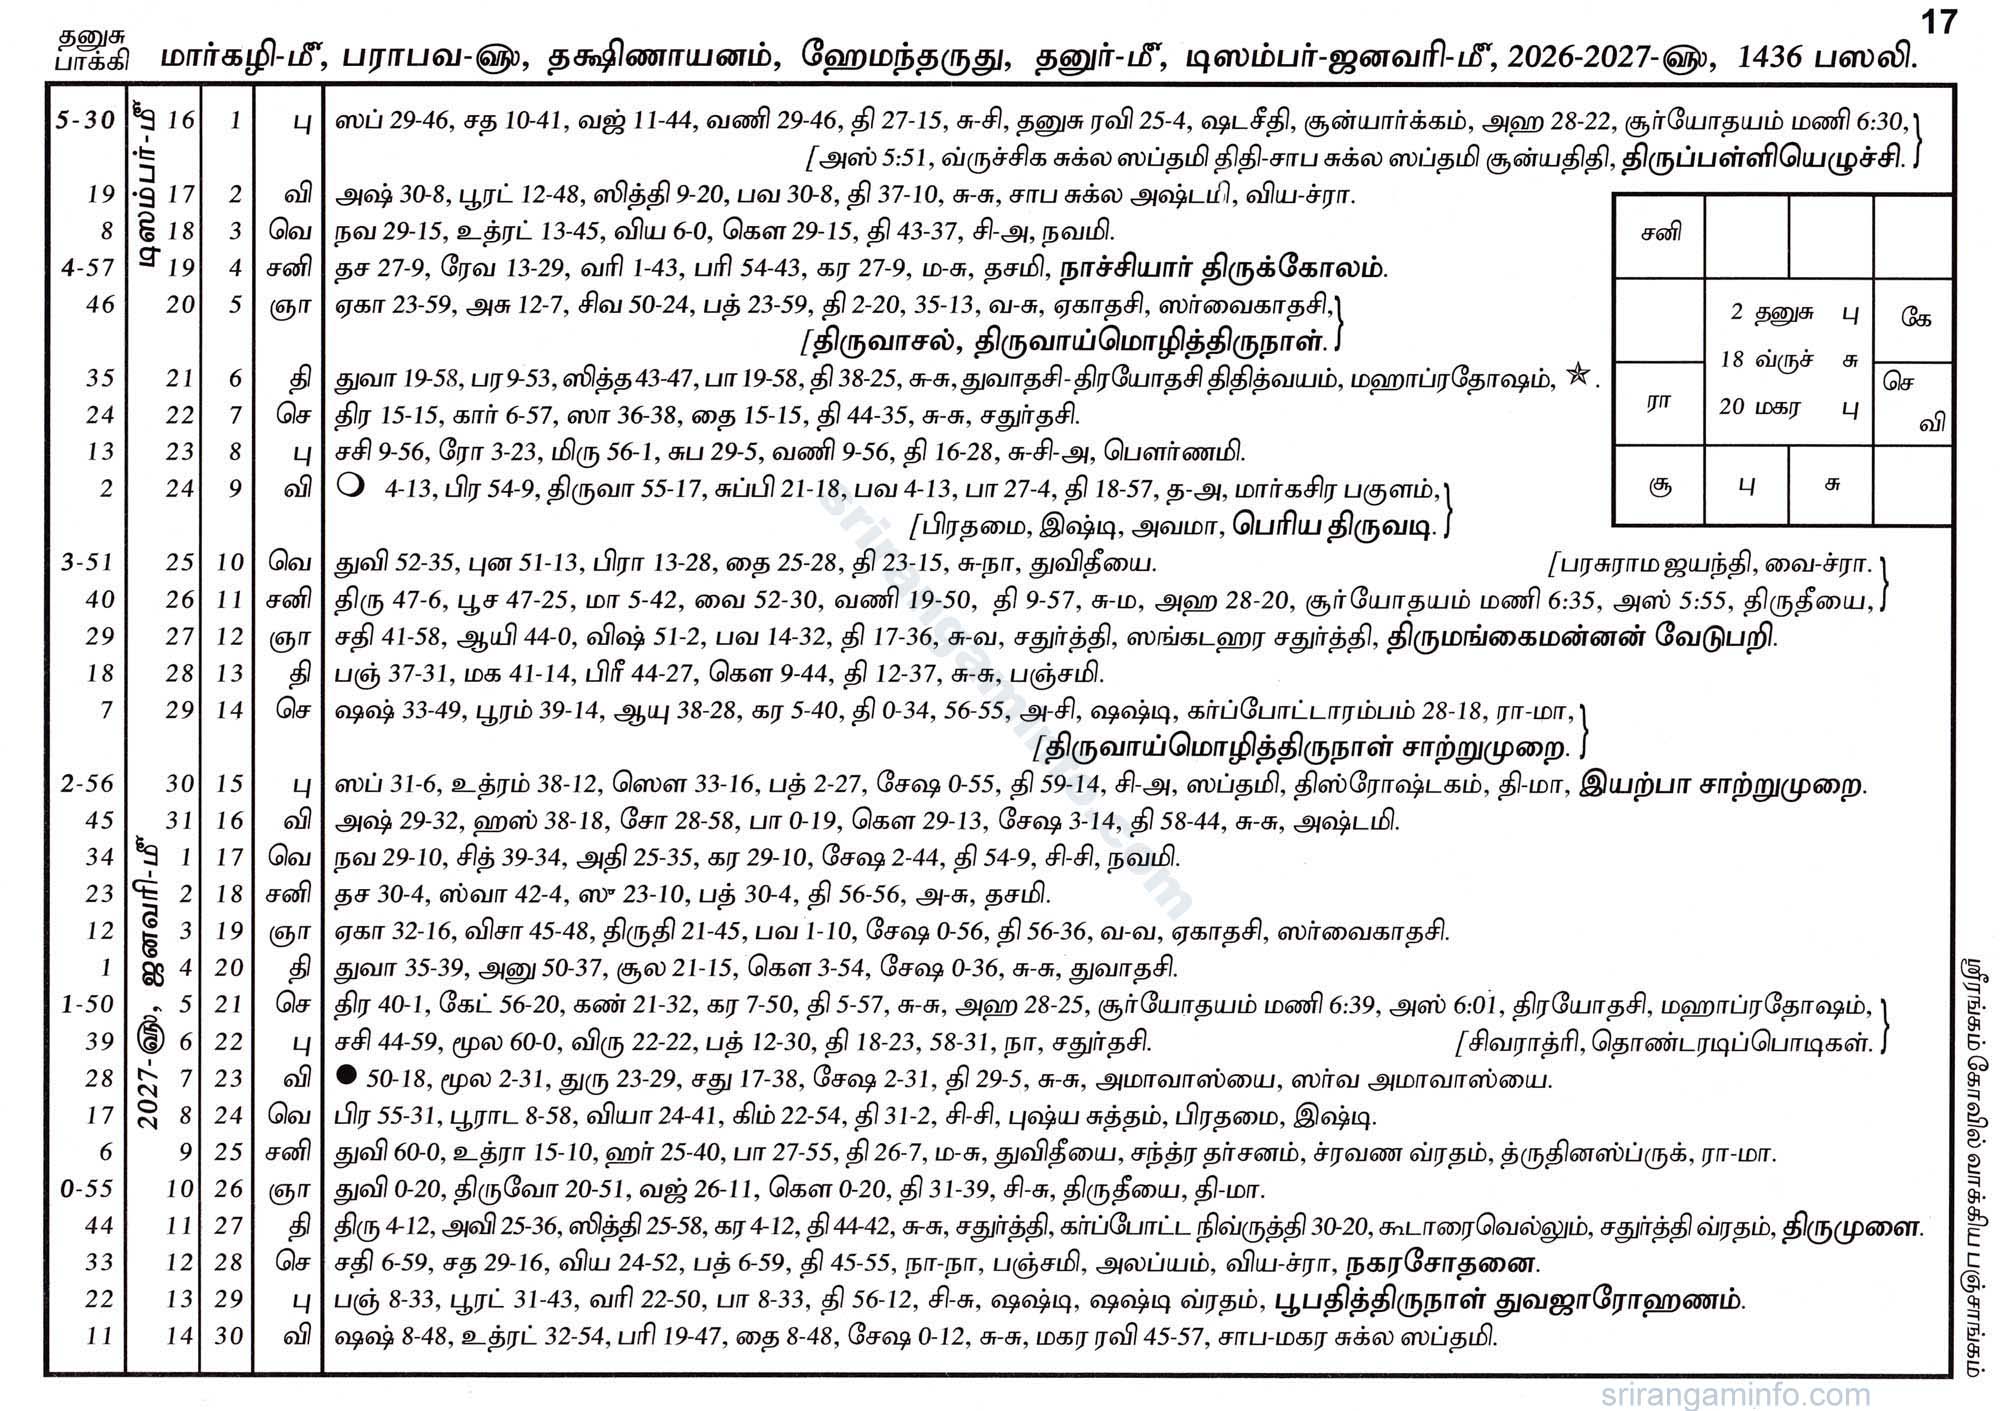 17
தனுசு
பாக்கி
மார்கழி-மீ, பராபவ-௵, தக்ஷிணாயனம், ஹேமந்தருது, தனுர்-மீ, டிஸம்பர்-ஜனவரி-மீ, 2026-2027-௵, 1436 பஸலி.
டிஸம்பர்-மீ
5-30 16 1 பு ஸப் 29-46, சத 10-41, வஜ் 11-44, வணி 29-46, தி 27-15, சு-சி, தனுசு ரவி 25-4, ஷடசீதி, சூன்யார்க்கம், அஹ 28-22, சூர்யோதயம் மணி 6:30,}
[அஸ் 5:51, வ்ருச்சிக சுக்ல ஸப்தமி திதி-சாப சுக்ல ஸப்தமி சூன்யதிதி, திருப்பள்ளியெழுச்சி.
19 17 2 வி அஷ் 30-8, பூரட் 12-48, ஸித்தி 9-20, பவ 30-8, தி 37-10, சு-சு, சாப சுக்ல அஷ்டமி, விய-ச்ரா.
8 18 3 வெ நவ 29-15, உத்ரட் 13-45, விய 6-0, கௌ 29-15, தி 43-37, சி-அ, நவமி.
4-57 19 4 சனி தச 27-9, ரேவ 13-29, வரி 1-43, பரி 54-43, கர 27-9, ம-சு, தசமி, நாச்சியார் திருக்கோலம்.
46 20 5 ஞா ஏகா 23-59, அசு 12-7, சிவ 50-24, பத் 23-59, தி 2-20, 35-13, வ-சு, ஏகாதசி, ஸர்வைகாதசி,}
[திருவாசல், திருவாய்மொழித்திருநாள்.
35 21 6 தி துவா 19-58, பர 9-53, ஸித்த 43-47, பா 19-58, தி 38-25, சு-சு, துவாதசி-திரயோதசி திதித்வயம், மஹாப்ரதோஷம், ☆.
24 22 7 செ திர 15-15, கார் 6-57, ஸா 36-38, தை 15-15, தி 44-35, சு-சு, சதுர்தசி.
13 23 8 பு சசி 9-56, ரோ 3-23, மிரு 56-1, சுப 29-5, வணி 9-56, தி 16-28, சு-சி-அ, பௌர்ணமி.
2 24 9 வி ○ 4-13, பிர 54-9, திருவா 55-17, சுப்பி 21-18, பவ 4-13, பா 27-4, தி 18-57, த-அ, மார்கசிர பகுளம்,}
[பிரதமை, இஷ்டி, அவமா, பெரிய திருவடி.
சனி
2 தனுசு பு
18 வ்ருச் சு
20 மகர பு
கே
ரா
செ
வி
சூ பு சு
3-51 25 10 வெ துவி 52-35, புன 51-13, பிரா 13-28, தை 25-28, தி 23-15, சு-நா, துவிதீயை. [பரசுராம ஜயந்தி, வை-ச்ரா.
40 26 11 சனி திரு 47-6, பூச 47-25, மா 5-42, வை 52-30, வணி 19-50, தி 9-57, சு-ம, அஹ 28-20, சூர்யோதயம் மணி 6:35, அஸ் 5:55, திருதீயை,}
29 27 12 ஞா சதி 41-58, ஆயி 44-0, விஷ் 51-2, பவ 14-32, தி 17-36, சு-வ, சதுர்த்தி, ஸங்கடஹர சதுர்த்தி, திருமங்கைமன்னன் வேடுபறி.
18 28 13 தி பஞ் 37-31, மக 41-14, பிரீ 44-27, கௌ 9-44, தி 12-37, சு-சு, பஞ்சமி.
7 29 14 செ ஷஷ் 33-49, பூரம் 39-14, ஆயு 38-28, கர 5-40, தி 0-34, 56-55, அ-சி, ஷஷ்டி, கர்ப்போட்டாரம்பம் 28-18, ரா-மா,}
[திருவாய்மொழித்திருநாள் சாற்றுமுறை.
2-56 30 15 பு ஸப் 31-6, உத்ரம் 38-12, ஸௌ 33-16, பத் 2-27, சேஷ 0-55, தி 59-14, சி-அ, ஸப்தமி, திஸ்ரோஷ்டகம், தி-மா, இயற்பா சாற்றுமுறை.
45 31 16 வி அஷ் 29-32, ஹஸ் 38-18, சோ 28-58, பா 0-19, கௌ 29-13, சேஷ 3-14, தி 58-44, சு-சு, அஷ்டமி.
2027-௵, ஜனவரி-மீ
34 1 17 வெ நவ 29-10, சித் 39-34, அதி 25-35, கர 29-10, சேஷ 2-44, தி 54-9, சி-சி, நவமி.
23 2 18 சனி தச 30-4, ஸ்வா 42-4, ஸு 23-10, பத் 30-4, தி 56-56, அ-சு, தசமி.
12 3 19 ஞா ஏகா 32-16, விசா 45-48, திருதி 21-45, பவ 1-10, சேஷ 0-56, தி 56-36, வ-வ, ஏகாதசி, ஸர்வைகாதசி.
1 4 20 தி துவா 35-39, அனு 50-37, சூல 21-15, கௌ 3-54, சேஷ 0-36, சு-சு, துவாதசி.
1-50 5 21 செ திர 40-1, கேட் 56-20, கண் 21-32, கர 7-50, தி 5-57, சு-சு, அஹ 28-25, சூர்யோதயம் மணி 6:39, அஸ் 6:01, திரயோதசி, மஹாப்ரதோஷம்,}
39 6 22 பு சசி 44-59, மூல 60-0, விரு 22-22, பத் 12-30, தி 18-23, 58-31, நா, சதுர்தசி. [சிவராத்ரி, தொண்டரடிப்பொடிகள்.
28 7 23 வி ● 50-18, மூல 2-31, துரு 23-29, சது 17-38, சேஷ 2-31, தி 29-5, சு-சு, அமாவாஸ்யை, ஸர்வ அமாவாஸ்யை.
17 8 24 வெ பிர 55-31, பூராட 8-58, வியா 24-41, கிம் 22-54, தி 31-2, சி-சி, புஷ்ய சுத்தம், பிரதமை, இஷ்டி.
6 9 25 சனி துவி 60-0, உத்ரா 15-10, ஹர் 25-40, பா 27-55, தி 26-7, ம-சு, துவிதீயை, சந்த்ர தர்சனம், ச்ரவண வ்ரதம், த்ருதினஸ்ப்ருக், ரா-மா.
0-55 10 26 ஞா துவி 0-20, திருவோ 20-51, வஜ் 26-11, கௌ 0-20, தி 31-39, சி-சு, திருதீயை, தி-மா.
44 11 27 தி திரு 4-12, அவி 25-36, ஸித்தி 25-58, கர 4-12, தி 44-42, சு-சு, சதுர்த்தி, கர்ப்போட்ட நிவ்ருத்தி 30-20, கூடாரைவெல்லும், சதுர்த்தி வ்ரதம், திருமுளை.
33 12 28 செ சதி 6-59, சத 29-16, விய 24-52, பத் 6-59, தி 45-55, நா-நா, பஞ்சமி, அலப்யம், விய-ச்ரா, நகரசோதனை.
22 13 29 பு பஞ் 8-33, பூரட் 31-43, வரி 22-50, பா 8-33, தி 56-12, சி-சு, ஷஷ்டி, ஷஷ்டி வ்ரதம், பூபதித்திருநாள் துவஜாரோஹணம்.
11 14 30 வி ஷஷ் 8-48, உத்ரட் 32-54, பரி 19-47, தை 8-48, சேஷ 0-12, சு-சு, மகர ரவி 45-57, சாப-மகர சுக்ல ஸப்தமி.
ஸ்ரீரங்கம் கோவில் வாக்கிய பஞ்சாங்கம்
sriranganinfo.com
srirangaminfo.com